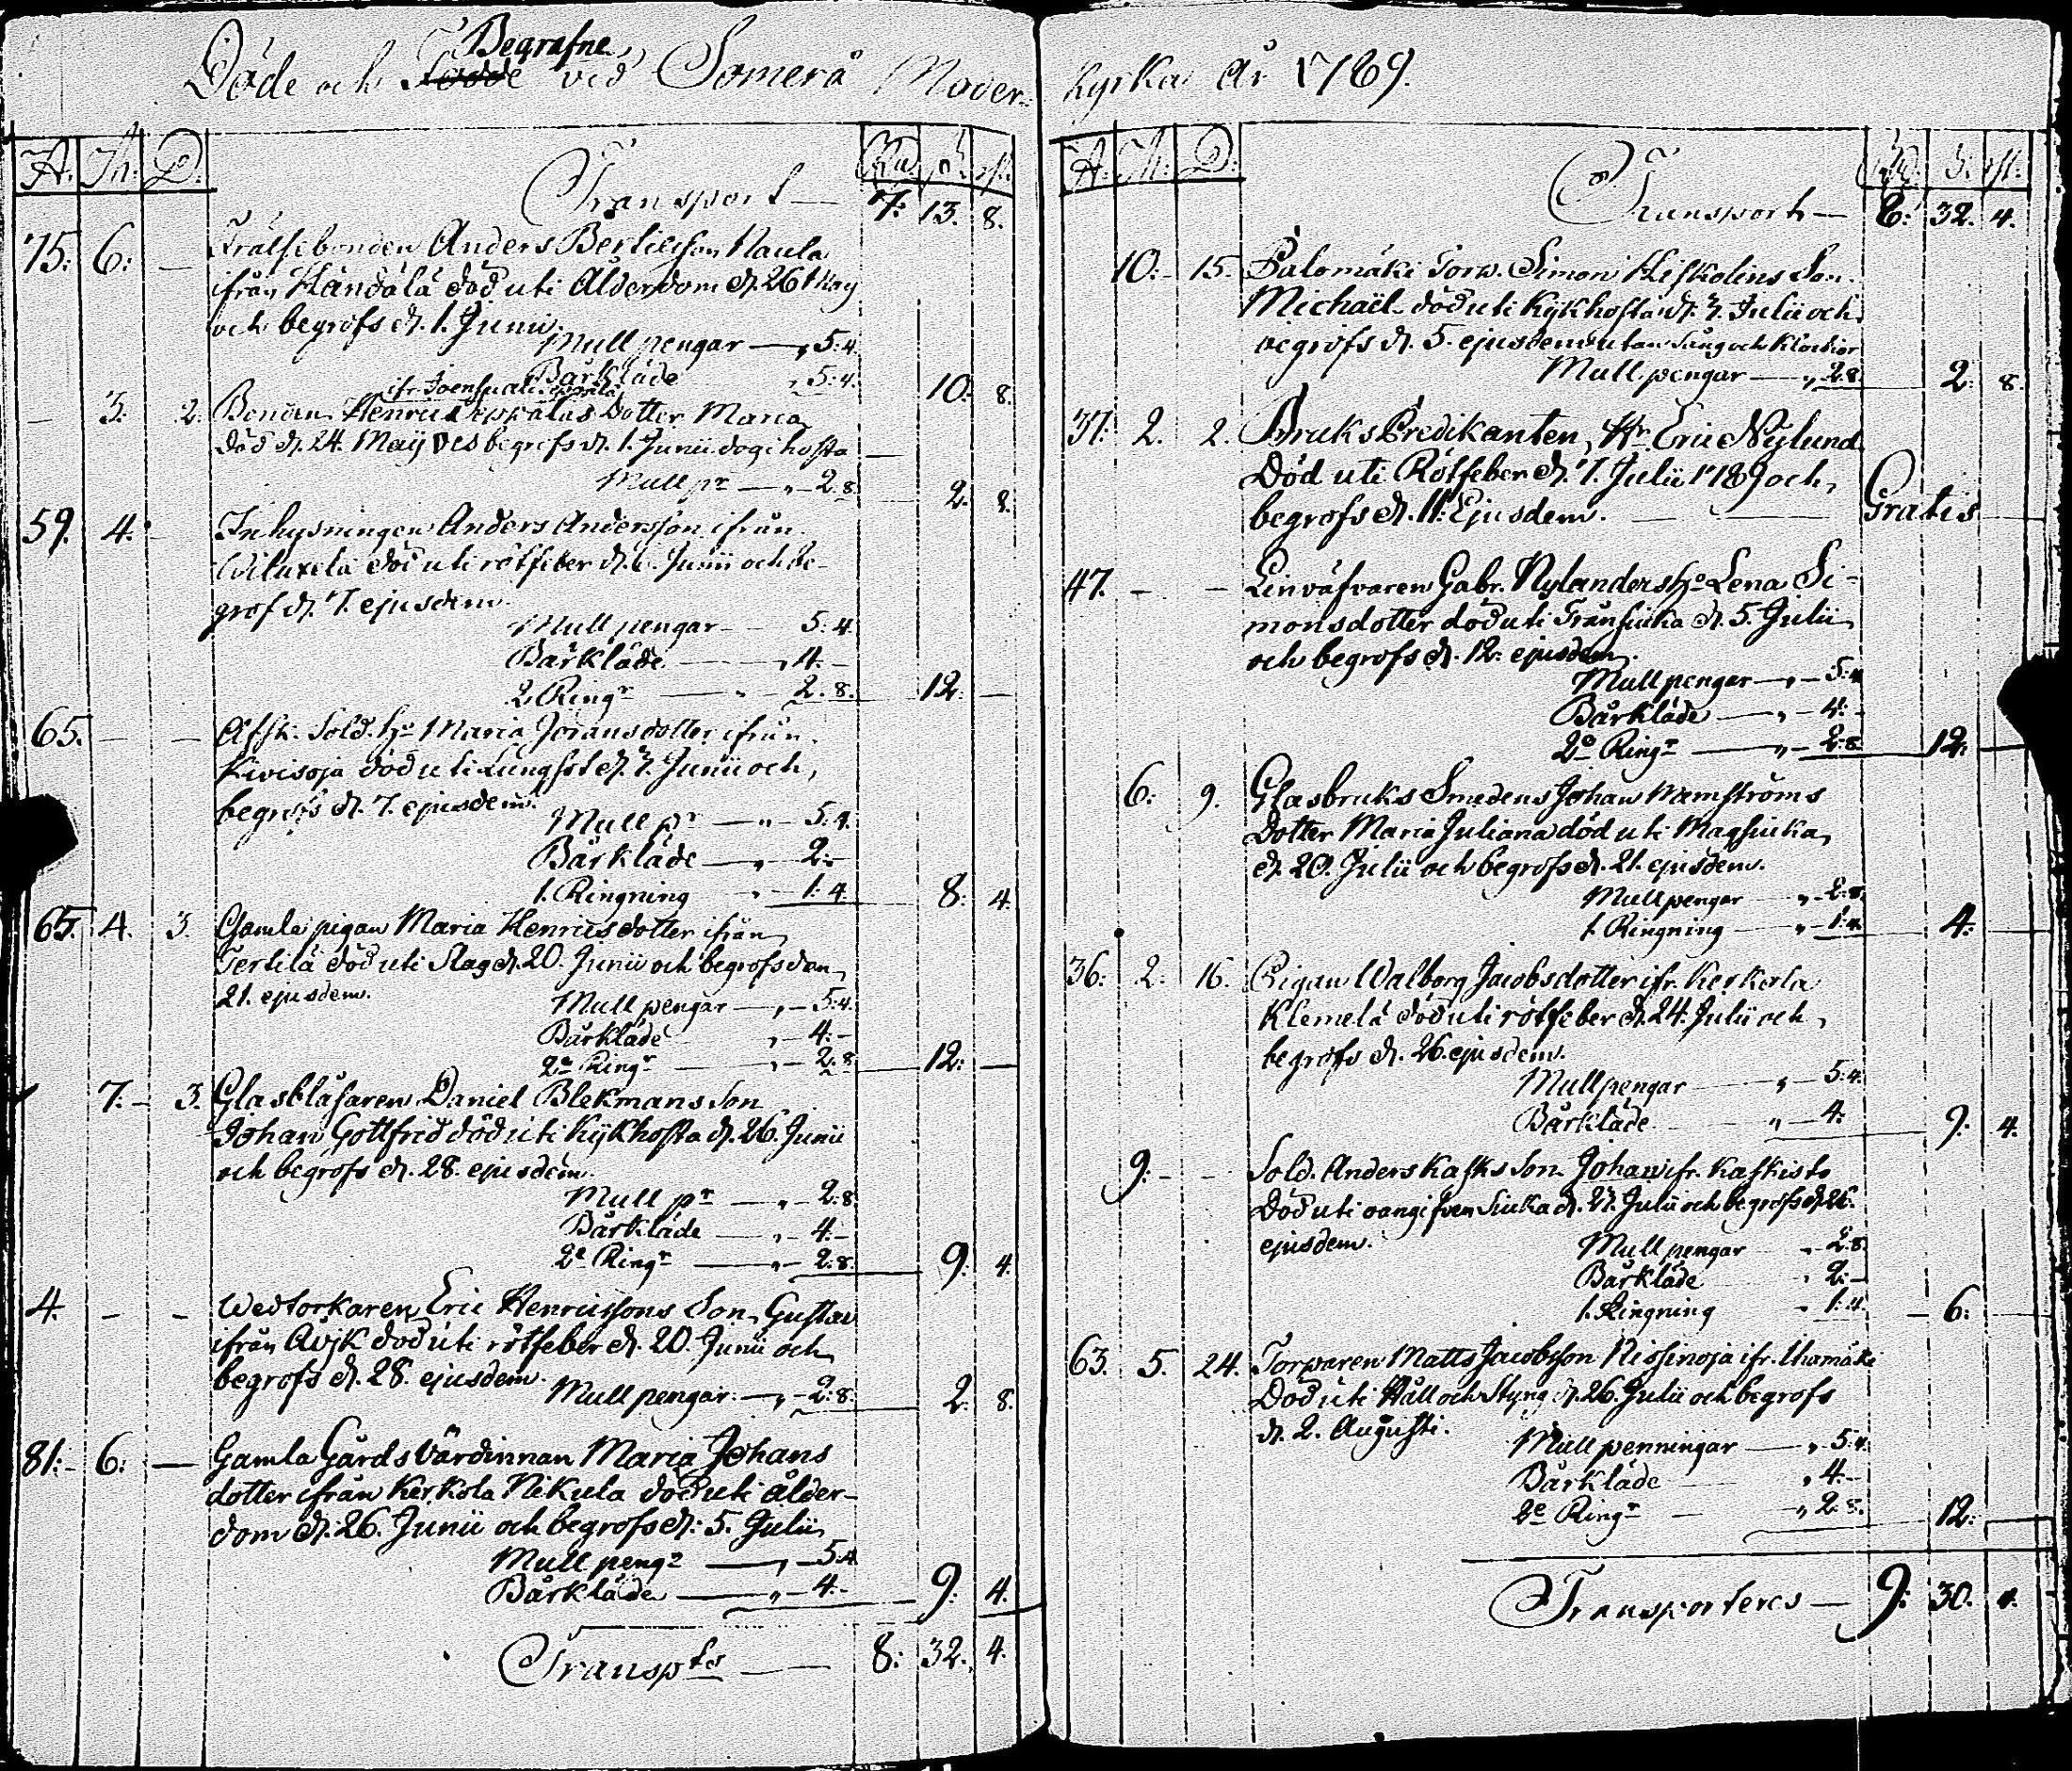 Begrafne
Döde och Födde vid Somerå Moder-
A. M. D. Rd. ß. rst.
Transport — 7: 13. 8.
75: 6: — Frälsebonden Anders Bertilsson Naula
ifrån Händälä död uti Ålderdom d. 26 May
och begrofs d. 1. Junii.
Mull pengar — „ 5:4.
Bårkläde „ 5:4. 10: 8.
ifr. Joensuu
— 3. 2. Bonden Henric Seppäläs Dotter Maria
död d. 24. May begrofs d. 1. Junii dog i hosta
Mull pr — „ 2:8. 2. 8.
59. 4. Inhysningen Anders Andersson ifrån
Viluxela död uti rötfeber d. 1. Junii och be-
grof d. 7. ejusdem
Mull pengar — 5:4.
Bårkläde — „ 4:-
2 Ringr — „ — 2:8. 12: —
65. — — Afsk. Sold. Ho Maria Joransdotter ifrån
Kivisoja död uti Lungsot d. 3. Junii och
begrofs d. 7. ejusdem.
Mull pr — „ — 5:4.
Bårkläde — „ 2:-
1. Ringning „ — 1:4. 8: 4.
65. 4. 3. Gamla pigan Maria Henricsdotter ifrån
Tertilä död uti Slag d. 20. Junii och begrofs den
21. ejusdem.
Mull pengar — „ — 5:4.
Bårkläde „ — 4:-
2e Ringr — „ — 2:8 12: —
7. — 3. Glasblåsaren Daniel Blekmans Son
Johan Gottfrid död uti Kykhosta d. 26. Junii
och begrofs d. 28. ejusdem.
Mull pr — „ — 2:8
Bårkläde — „ — 4:-
2e Ringr — „ — 2:8. 9: 4.
4. — — Wedtorkaren Eric Henricssons Son Gustav
ifrån Åvik död uti rötfeber d. 20. Junii och
begrofs d. 28. ejusdem.
Mull pengar — „ — 2:8. 2: 8.
81: 6: — Gamla Gårds Värdinnan Maria Johans
dotter ifrån Kerkola Nikula död uti ålder-
dom d. 26. Junii och begrofs d. 5. Julii
Mull pengr — „ — 5:4
Bårkläde — „ — 4:- 9: 4.
Transpts — 8: 32. 4.
Kyrka År 1789.
A: M: D: Rd. ß. rst.
Transport — 8: 32. 4.
10: — 15. Palomäki Torp. Simon Kiskolins Son
Michaël död uti Kykhosta d. 3. Julii och
begrofs d. 5. ejusdem utan sång och Klockor
Mull pengar — „ 2:8. 2: 8.
37: 2. 2. Bruks Predikanten, Hr Eric Nylund
Död uti Rötfeber d. 7. Julii 1789 och
begrofs d. 11: Ejusdem. — Gratis
47. — — Linväfvaren Gabr. Nylanders Ho Lena Si-
monsdotter död uti Trånsiuka d. 5. Julii
och begrofs d. 12. ejusdem.
Mull pengar — „ — 5:4
Bårkläde — „ — 4:-
2e Ringr — „ — 2:8. 12: —
6: 9. Glasbruks Smedens Johan Malmströms
Dotter Maria Juliana död uti Magsiuka
d. 20. Julii och begrofs d. 21. ejusdem.
Mullpengar „ — 2:8.
1. Ringning „ — 1:4. 4:
36: 2: 16. Pigan Walborg Jacobsdotter ifr. Kerkola
Klemelä död uti rötfeber d. 24. Julii och
begrofs d. 26. ejusdem.
Mullpengar — „ — 5:4.
Bårkläde „ — 4. 9: 4.
9: — — Sold. Anders Kasks Son Johan ifr. Kaskisto
Död uti oangifven Siuka d. 23. Julii och begrofs d. 26.
ejusdem.
Mull pengar „ — 2:8.
Bårkläde „ 2:-
1. Ringning „ 1:4. — 6:
63. 5. 24. Torparen Matts Jacobsson Nissinoja ifr.
Död uti Håll och Styng d. 26. Julii och begrofs
d. 2. Augusti.
Mull penningar — „ 5:4.
Bårkläde „ 4:-
2e Ringr — „ 2:8. 12: —
Transporteres — 9: 30. 4.